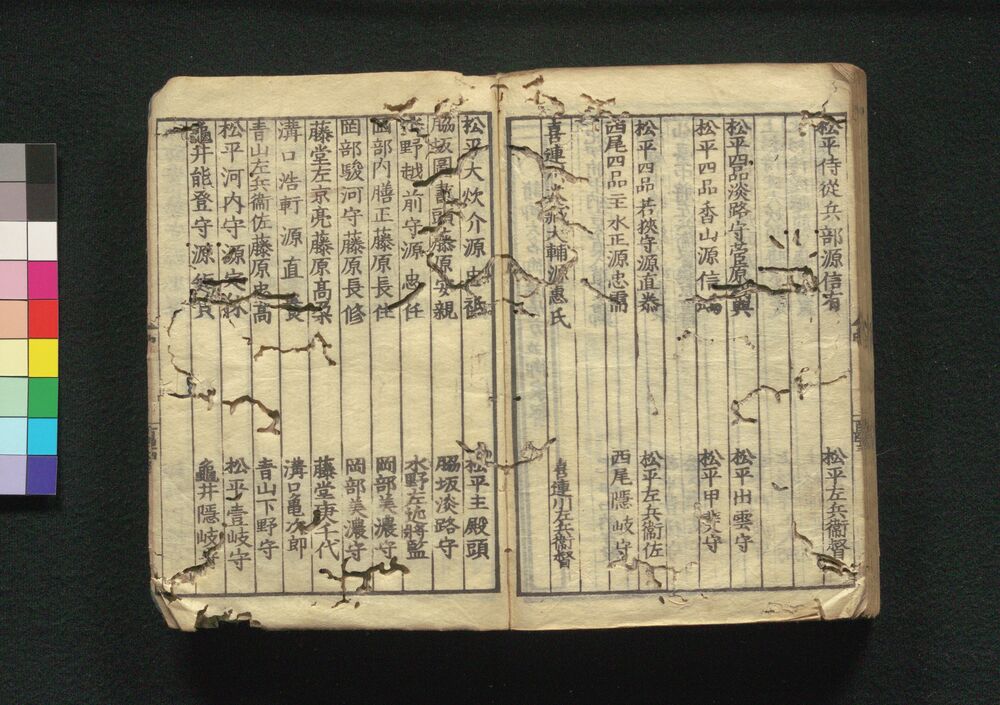 松平侍従兵部源信有
松平左兵衞督
松平四品淡路守菅原 興
松平出雲守
松平四品香山源信
松平甲斐守
松平四品若狹守源直恭
松平左兵衞佐
西尾四品主水正源忠需
西尾隠岐守
喜連川 大輔源惠氏
喜連川左兵衞督
松平大炊介源忠祗
松平主殿頭
脇坂圖書頭藤原安親
脇坂淡路守
水野越前守源忠任
水野左近將監
岡部内膳正藤原長住
岡部美濃守
岡部駿河守藤原長修
岡部美濃守
藤堂左京亮藤原髙
藤堂庚千代
溝口浩軒源直養
溝口亀次郎
青山左兵衞佐藤原忠髙
青山下野守
松平河内守源
松平壹岐守
龜井能登守源
龜井隱岐